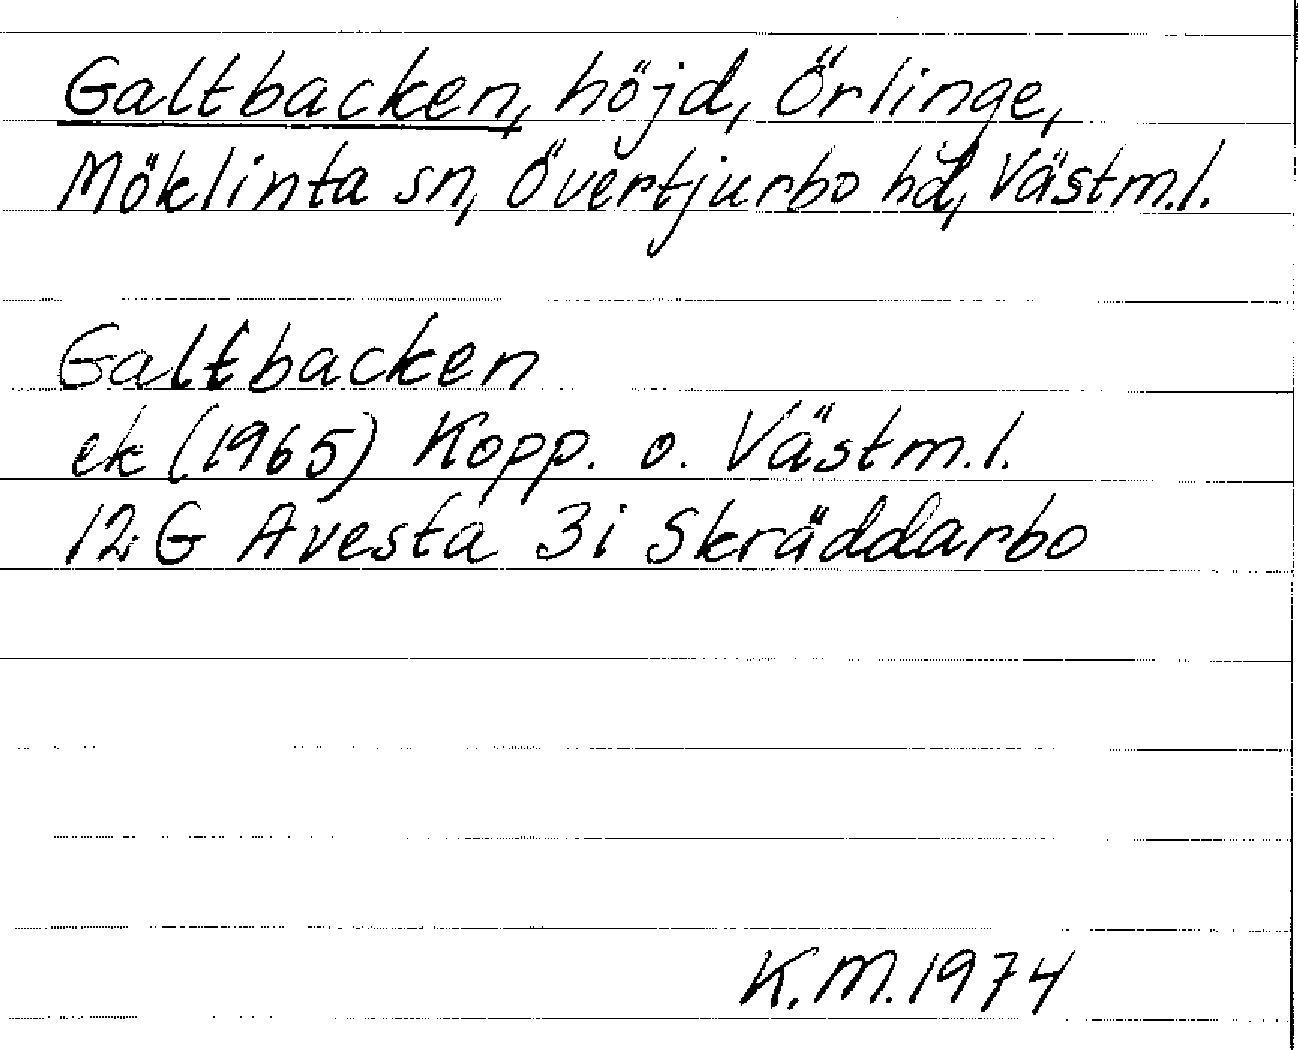 Galtbacken, höjd, Örlinge,
Möklinta sn, Övertjurbo hd, Västm.l.
Galtbacken
ek (1965) Kopp. o. Västm.l.
12 G Avesta 3i Skräddarbo
K.M. 1974